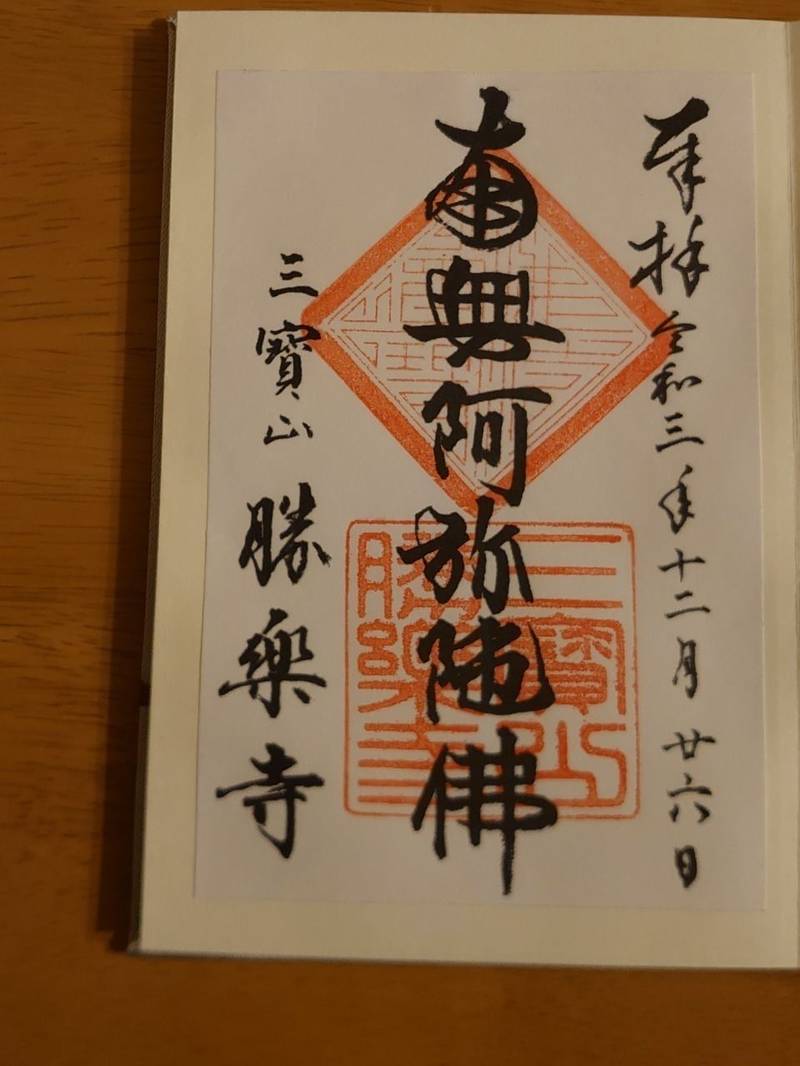 奉拝 令和三年十二月廿六日
南無阿弥陀佛
三寶山 勝樂寺
三寶山
勝樂寺